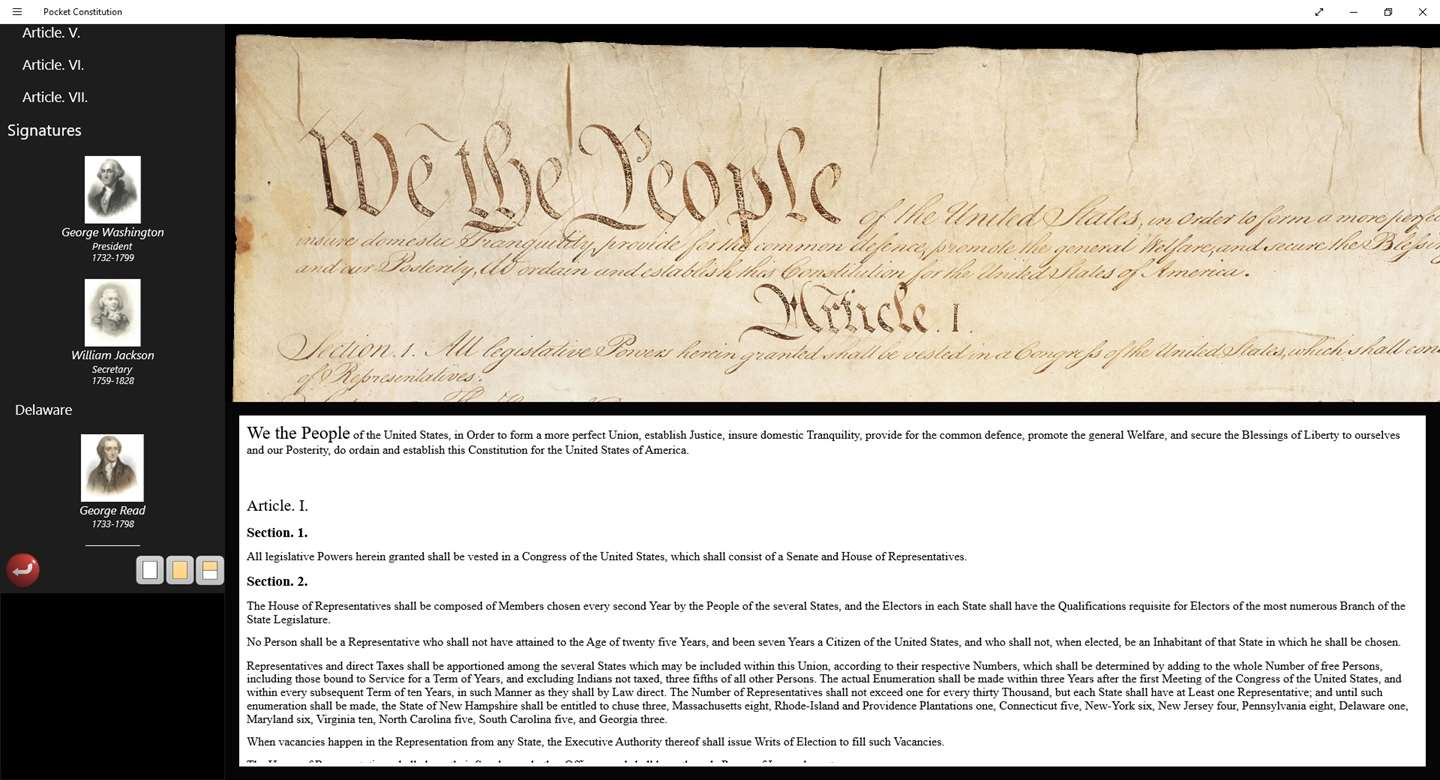 Pocket Constitution
Article. V.
Article. VI.
Article. VII.
Signatures
George Washington
President
1732-1799
William Jackson
Secretary
1759-1828
Delaware
George Read
1733-1798
We the People of the United States, in Order to form a more perfec
insure domestic Tranquility, provide for the common defence, promote the general Welfare, and secure the Blessin
and our Posterity, do ordain and establish this Constitution for the United States of America.
Article. I.
Section. 1. All legislative Powers herein granted shall be vested in a Congress of the United States, which shall con
of Representatives.
We the People of the United States, in Order to form a more perfect Union, establish Justice, insure domestic Tranquility, provide for the common defence, promote the general Welfare, and secure the Blessings of Liberty to ourselves
and our Posterity, do ordain and establish this Constitution for the United States of America.
Article. I.
Section. 1.
All legislative Powers herein granted shall be vested in a Congress of the United States, which shall consist of a Senate and House of Representatives.
Section. 2.
The House of Representatives shall be composed of Members chosen every second Year by the People of the several States, and the Electors in each State shall have the Qualifications requisite for Electors of the most numerous Branch of the
State Legislature.
No Person shall be a Representative who shall not have attained to the Age of twenty five Years, and been seven Years a Citizen of the United States, and who shall not, when elected, be an Inhabitant of that State in which he shall be chosen.
Representatives and direct Taxes shall be apportioned among the several States which may be included within this Union, according to their respective Numbers, which shall be determined by adding to the whole Number of free Persons,
including those bound to Service for a Term of Years, and excluding Indians not taxed, three fifths of all other Persons. The actual Enumeration shall be made within three Years after the first Meeting of the Congress of the United States, and
within every subsequent Term of ten Years, in such Manner as they shall by Law direct. The Number of Representatives shall not exceed one for every thirty Thousand, but each State shall have at Least one Representative; and until such
enumeration shall be made, the State of New Hampshire shall be entitled to chuse three, Massachusetts eight, Rhode-Island and Providence Plantations one, Connecticut five, New-York six, New Jersey four, Pennsylvania eight, Delaware one,
Maryland six, Virginia ten, North Carolina five, South Carolina five, and Georgia three.
When vacancies happen in the Representation from any State, the Executive Authority thereof shall issue Writs of Election to fill such Vacancies.